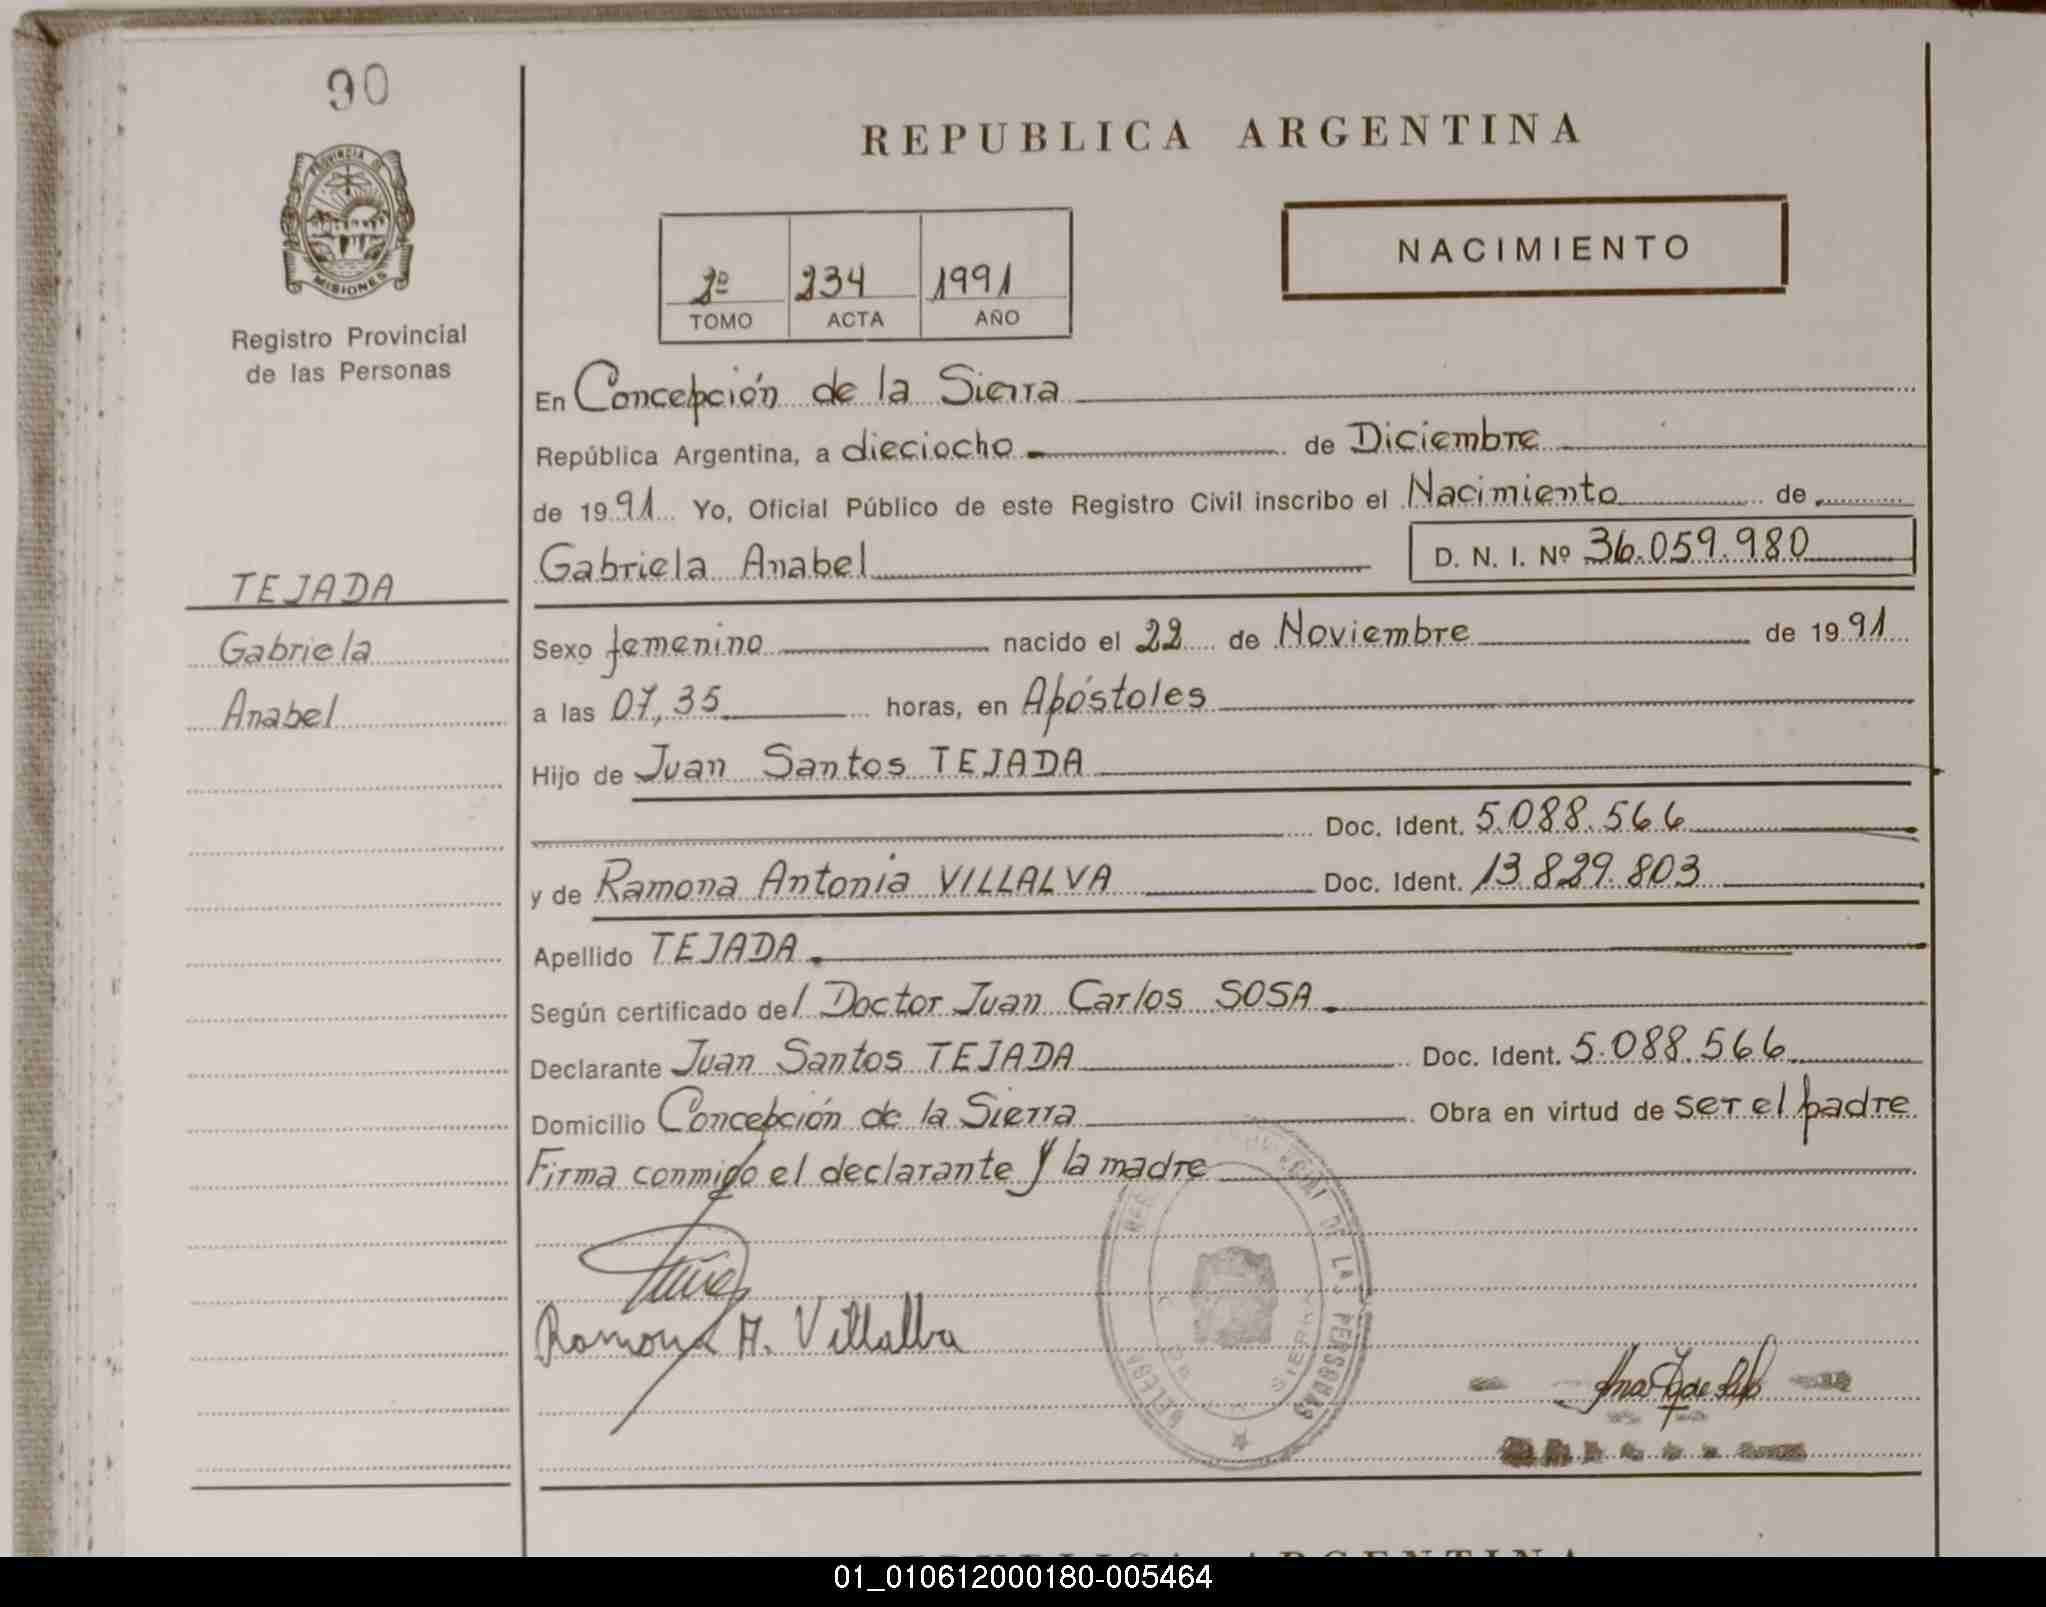 90
PROVINCIA DE
MISIONES
Registro Provincial
de las Personas
TEJADA
Gabriela
Anabel
REPUBLICA ARGENTINA
NACIMIENTO
2º 234 1991
TOMO ACTA AÑO
En Concepción de la Sierra
República Argentina, a dieciocho de Diciembre
de 1991 Yo, Oficial Público de este Registro Civil inscribo el Nacimiento de
Gabriela Anabel D. N. I. Nº 36.059.980
Sexo femenino nacido el 22 de Noviembre de 1991
a las 07,35 horas, en Apóstoles
Hijo de Juan Santos TEJADA
Doc. Ident. 5.088.566
y de Ramona Antonia VILLALVA Doc. Ident. 13.829.803
Apellido TEJADA
Según certificado del Doctor Juan Carlos SOSA
Declarante Juan Santos TEJADA Doc. Ident. 5.088.566
Domicilio Concepción de la Sierra Obra en virtud de ser el padre
Firma conmigo el declarante y la madre
DE LAS PERSONAS
SIERRA
Ramona A. Villalba
REPUBLICA ARGENTINA
01_010612000180-005464